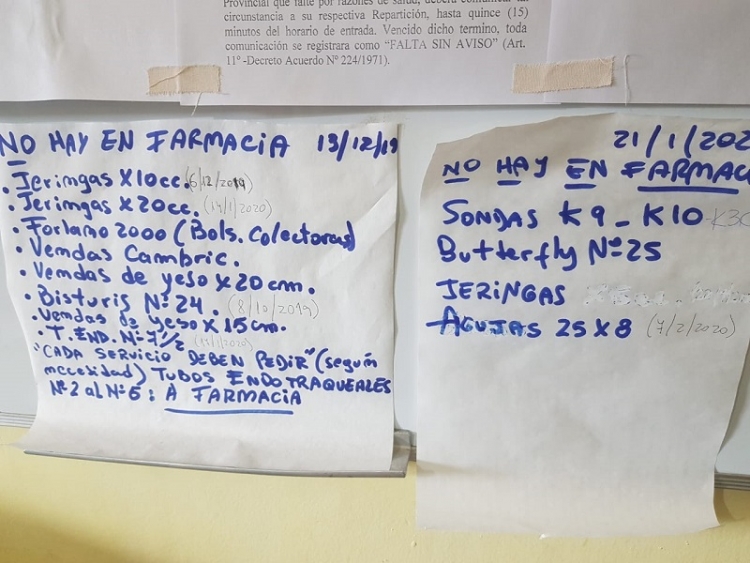 Provincial que falte por razones de salud, deberá comunicar
circunstancia a su respectiva Repartición, hasta quince (15)
minutos del horario de entrada. Vencido dicho termino, toda
comunicación se registrara como "FALTA SIN AVISO" (Art.
11º -Decreto Acuerdo Nº 224/1971).
NO HAY EN FARMACIA 13/12/19
. Jeringas X10cc. (6/12/2019)
. Jeringas X 20cc. (14/1/2020)
. Forlano 2000 (Bols. Colectoras)
. Vendas Cambric.
. Vendas de yeso x 20 cm.
. Bisturis Nº 24. (8/10/2019)
. Vendas de yeso x 15 cm.
. T. END. Nº 7 1/2
"CADA SERVICIO DEBEN PEDIR" (según
necesidad) TUBOS ENDOTRAQUEALES
Nº 2 al Nº 6: A FARMACIA
21/1/202
NO HAY EN FARMAC
SONDAS K9 - K10 -K30
Butterfly Nº 25
JERINGAS
AGUJAS 25 X 8 (7/2/2020)